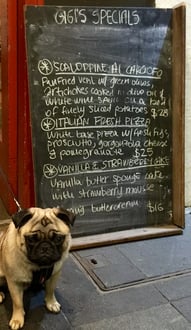 GIGI'S SPECIALS
SCALOPPINE AI CARCIOFO
Panfried veal w/ green olives,
artichokes cooked in olive oil &
white wine sauce on a bed
of finely sliced potatoes $28
ITALIAN FRESH PIZZA
white base pizza w/ fresh figs,
prosciutto, gorgonzola cheese
& pomegranate $25
VANILLA & STRAWBERRY CAKE
Vanilla butter sponge cake
with strawberry mousse
buttercream $16